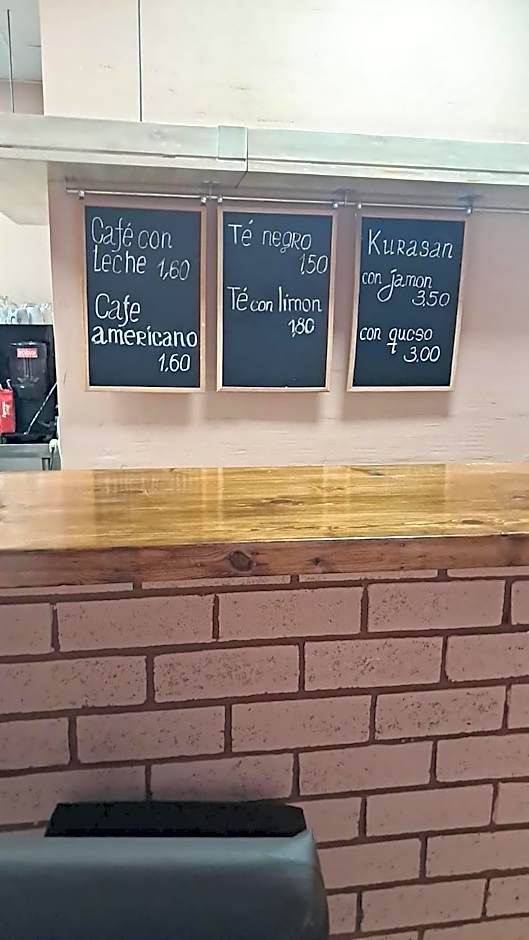 Café con
Leche 1,60
Cafe
americano
1.60
Té negro
1,50
Té con limon
1,80
Kurasan
con jamon
3,50
con queso
3,00